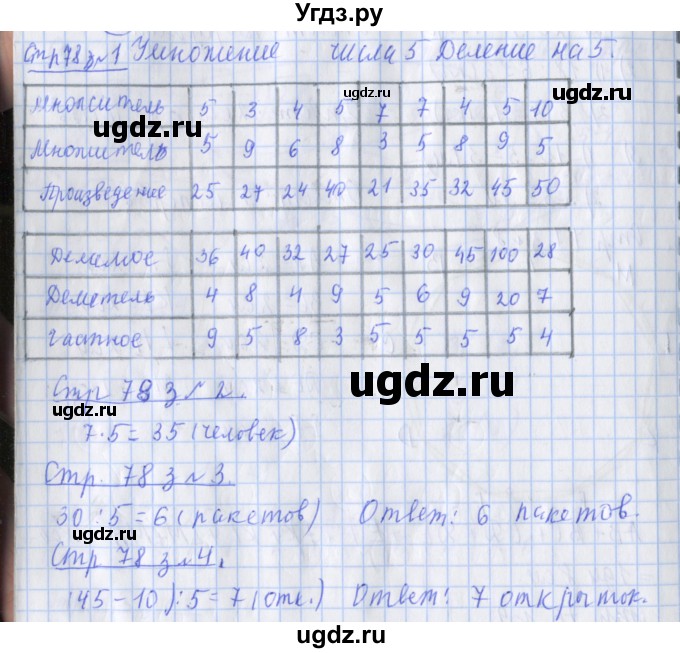 Угдз.ру
Стр 78 з№1 Умножение числа 5 Деление на 5.
Множитель 5 3 4 5 7 7 4 5 10
ugdz.ru ugdz.ru
Множитель 5 9 6 8 3 5 8 9 5
Произведение 25 27 24 40 21 35 32 45 50
Делимое 36 40 32 27 25 30 45 100 28
ugdz.ru ugdz.ru
Делитель 4 8 4 9 5 6 9 20 7
Частное 9 5 8 3 5 5 5 5 4
ugdz.ru
Стр 78 з№2.
ugdz.ru
7·5=35 (человек)
Стр. 78 з№3.
ugdz.ru
30:5=6 (пакетов) Ответ: 6 пакетов.
ugdz.ru
Стр 78 з№4.
(45-10):5=7 (отк.) Ответ: 7 открыток.
ugdz.ru